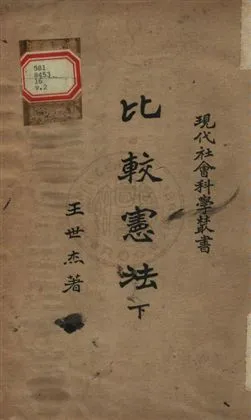 現代社會科學叢書
比較憲法下
王世杰著
581
8453
16
v.2